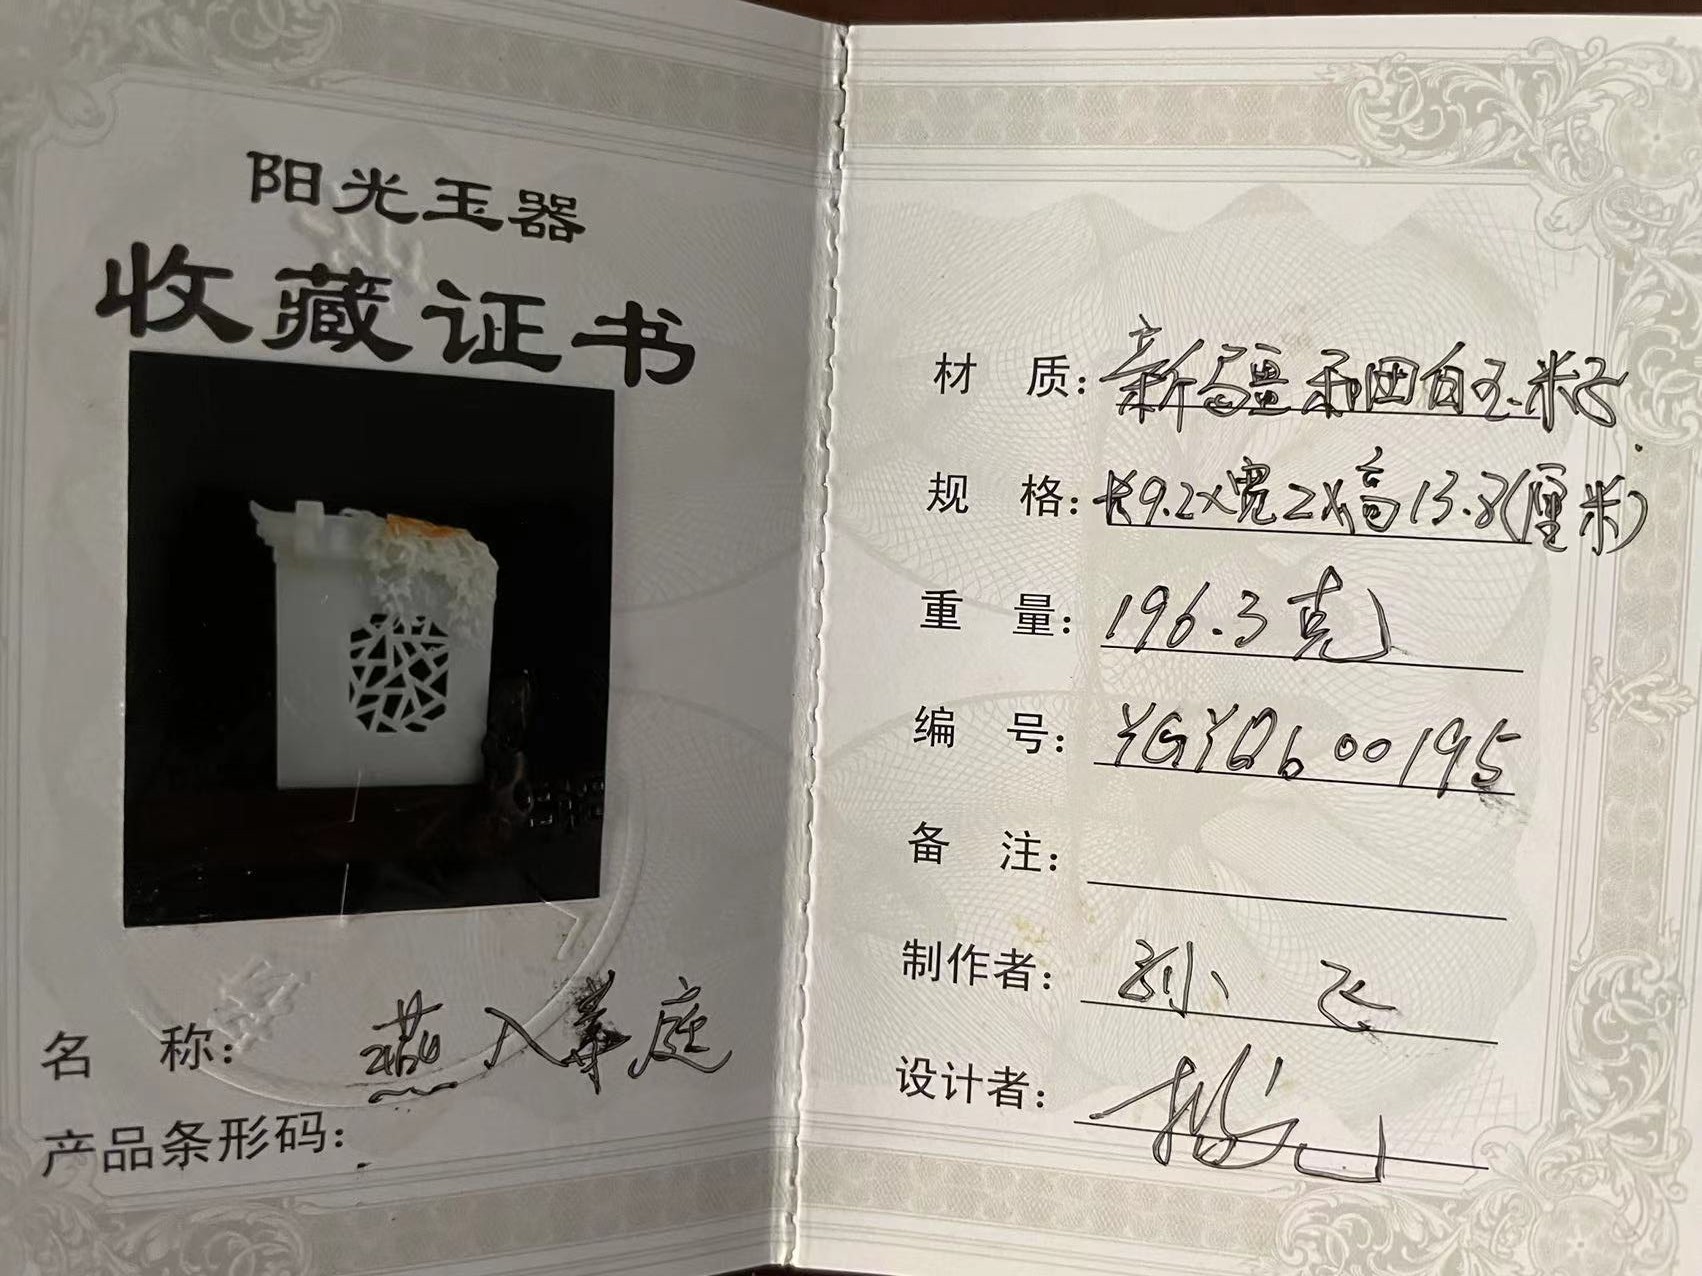 阳光玉器
收藏证书
名称：燕入草庭
产品条形码：
材质：新疆和田白玉籽
规格：长9.2×宽2×高13.8(厘米)
重量：196.3克
编号：YGYQb00195
备注：
制作者：孙飞
设计者：